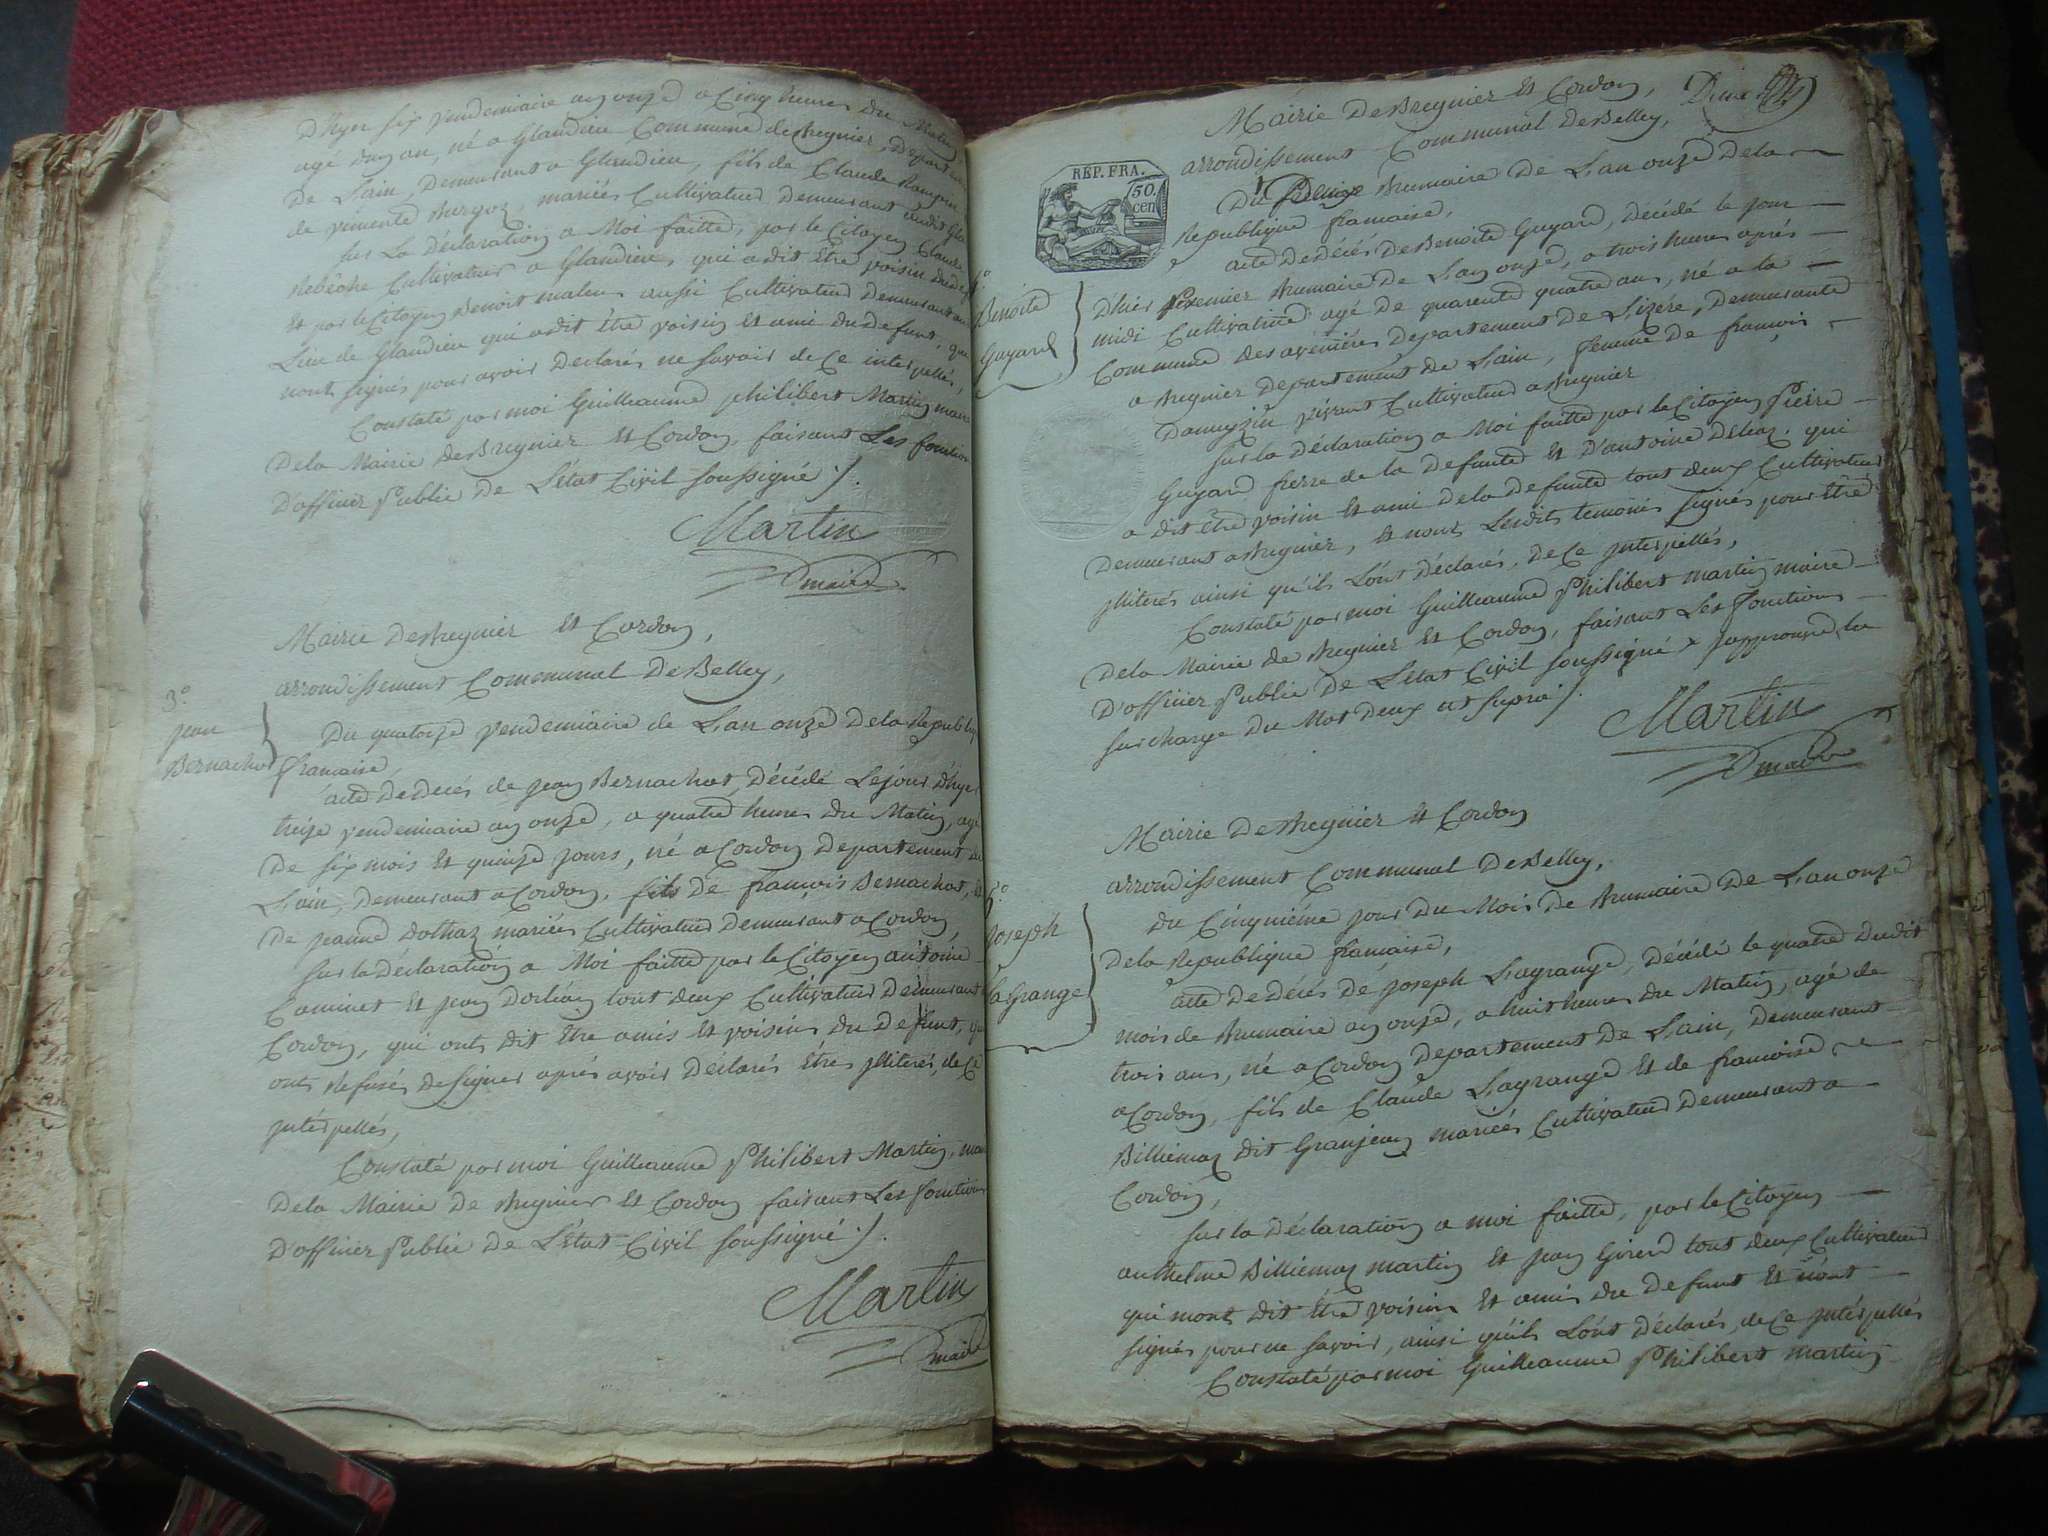 D'hyer six vendemiaire an onze a Cinq heures du Matin
agé d'un an, né a Glandieu Commune de Bregnier, Departement
De L'ain, Demeurant a Glandieu, fils de Claude
de pimente mariés Cultivateur Demeurant audit
sur La Déclaration a Moi faitte, par le Citoyen Claude
Rebêche Cultivateur a Glandieu, qui a dit Etre voisin
Et par le Citoyen Benoit aussi Cultivateur Demeurant au
Lieu de Glandieu qui a dit être voisin Et ami du defunt, qui
n'ont signés pour avoir Declarés ne savoir de Ce interpellés,
Constaté par moi Guilleaume philibert Martin maire
Dela Mairie de Bregnier Et Cordon, faisant Les fonctions
D'officier Public De L'état Civil soussigné ./.
Martin
maire
Mairie De Bregnier Et Cordon,
arrondissement Communal De Belley,
3°
jean
Bernachot
Du quatorze vendemiaire de L'an onze Dela Republique
francaise,
acte De Décés de jean Bernachot, Décédé Le jour D'hyer
treize vendemiaire an onze, a quatre heures Du Matin, agé
De six mois Et quinze jours, né a Cordon Departement de
L'ain, Demeurant a Cordon, fils De francois Bernachot, Et
De jeanne Dothaz mariés Cultivateur Demeurant a Cordon,
sur la Déclaration a Moi faitte par le Citoyen antoine
Caminet Et jean tout deux Cultivateur Demeurant a
Cordon, qui ont dit Etre amis Et voisins du Defunt, qui
ont Refusés de signer aprés avoir Déclarés Etres jlliterés, de Ce
jnterpellés,
Constaté par moi Guilleaume Philibert Martin, maire
Dela Mairie de Bregnier Et Cordon faisant Les fonctions
D'officier Public De L'état Civil soussigné ./.
Martin
maire
Mairie De Bregnier Et Cordon,
arrondissement Communal De Belley,
REP. FRA.
50.
cen
Du Deuxe Brumaire De L'an onze Dela
Republique francaise,
4°
Benoite
Guyard
acte De Décés De Benoite Guyard, Décédé le jour
D'hier Premier Brumaire De L'an onze, a trois heures aprés
midi Cultivatrice agé de quarente quatre ans, né a la
Commune des avenières Departement de L'izère, Demeurante
a Bregnier Departement de L'ain, femme de francois
vivant Cultivateur a Bregnier
sur la Déclaration a Moi faitte par le Citoyen Pierre
Guyard frerre de la Defunte Et D'antoine qui
a dit être voisin Et ami Dela Defunte tout deux Cultivateur
Demeurant a Bregnier, Et n'ont Lesdits temoins signés pour Etre
jlliterés ainsi qu'ils L'ont Déclarés, de Ce jnterpellés,
Constaté par moi Guilleaume Philibert martin maire
Dela Mairie de Bregnier Et Cordon, faisant Les fonctions
D'officier Public De L'état Civil soussigné japprouve la
surcharge Du Mot Deux ut supra ./.
Martin
maire
Mairie De Bregnier Et Cordon
arrondissement Communal De Belley,
5°
joseph
LaGrange
Du Cinquiéme jour Du Mois de Brumaire De L'an onze
Dela Republique francaise,
acte De Décés De joseph Lagrange, Décédé le quatre Dudit
mois de Brumaire an onze, a huit heures Du Matin, agé de
trois ans, né a Cordon Departement De L'ain, Demeurant
a Cordon, fils de Claude Lagrange Et de francoise
Billiemaz dit Granjean mariés Cultivateur Demeurant a
Cordon,
sur la Déclaration a moi faitte, par le Citoyen
anthelme Billiemaz martin Et jean Girerd tout deux Cultivateur
qui m'ont dit Etre voisins Et amis Du Defunt Et n'ont
signés pour ne savoir, ainsi qu'ils L'ont Déclarés, de Ce jnterpellés
Constaté par moi Guilleaume Philibert martin